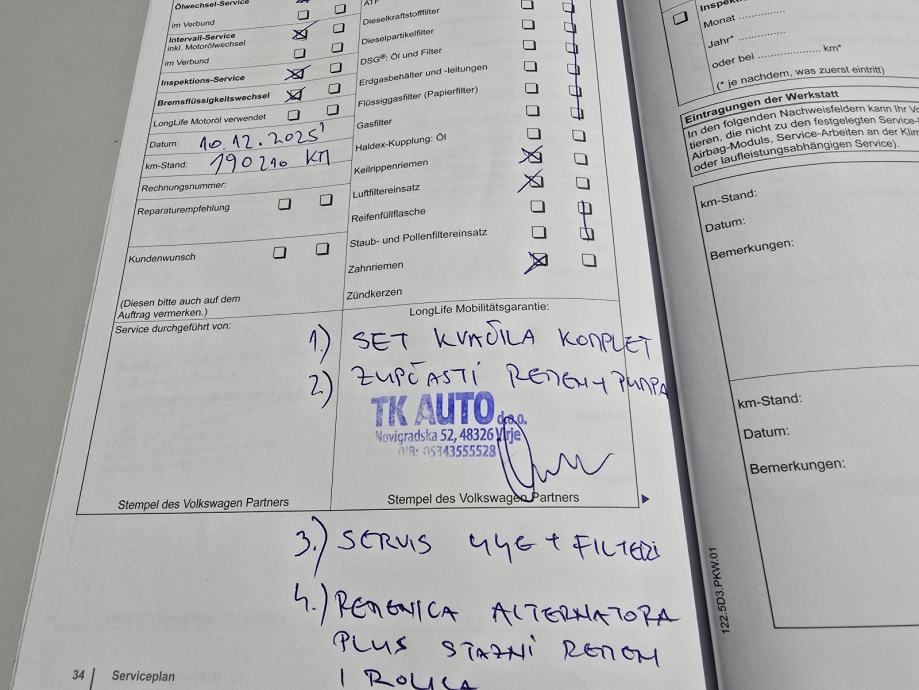 Ölwechsel-Service
im Verbund
Intervall-Service
inkl. Motorölwechsel
im Verbund
Inspektions-Service
Bremsflüssigkeitswechsel
LongLife Motoröl verwendet
Datum: 10.12.2025
km-Stand: 190210 KM
Rechnungsnummer:
Reparaturempfehlung
Kundenwunsch
(Diesen bitte auch auf dem
Auftrag vermerken.)
Service durchgeführt von:
Stempel des Volkswagen Partners
Dieselkraftstofffilter
Dieselpartikelfilter
DSG®: Öl und Filter
Erdgasbehälter und -leitungen
Flüssiggasfilter (Papierfilter)
Gasfilter
Haldex-Kupplung: Öl
Keilrippenriemen
Luftfiltereinsatz
Reifenfüllflasche
Staub- und Pollenfiltereinsatz
Zahnriemen
Zündkerzen
LongLife Mobilitätsgarantie:
1.) SET KVAČILA KOMPLET
2.) ZUPČASTI REMEN + PUMPA
TK AUTO d.o.o.
Novigradska 52, 48326 Virje
OIB: 05343555528
Stempel des Volkswagen Partners
3.) SERVIS ULJE + FILTERI
4.) REMENICA ALTERNATORA
PLUS STAZNI REMEN
I ROLICA
34 Serviceplan
Monat
Jahr*
oder bei km*
(* je nachdem, was zuerst eintritt)
Eintragungen der Werkstatt
In den folgenden Nachweisfeldern kann Ihr
tieren, die nicht zu den festgelegten Service-
Airbag-Moduls, Service-Arbeiten an der
oder laufleistungsabhängigen Service).
km-Stand:
Datum:
Bemerkungen:
km-Stand:
Datum:
Bemerkungen:
122.5D3.PKW.01